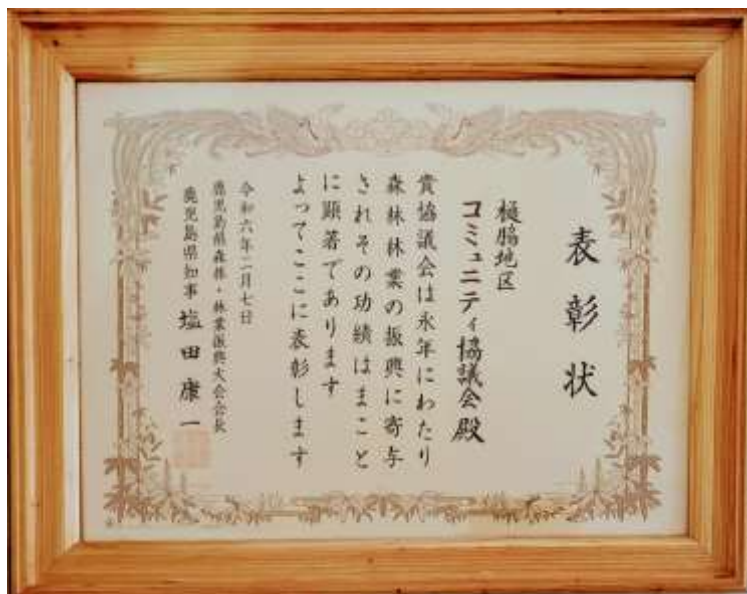 表彰状
樋脇地区
コミュニティ協議会殿
貴協議会は永年にわたり
森林林業の振興に寄与
されその功績はまこと
に顕著であります
よってここに表彰します
令和六年二月七日
鹿児島県森林・林業振興大会会長
鹿児島県知事 塩田康一